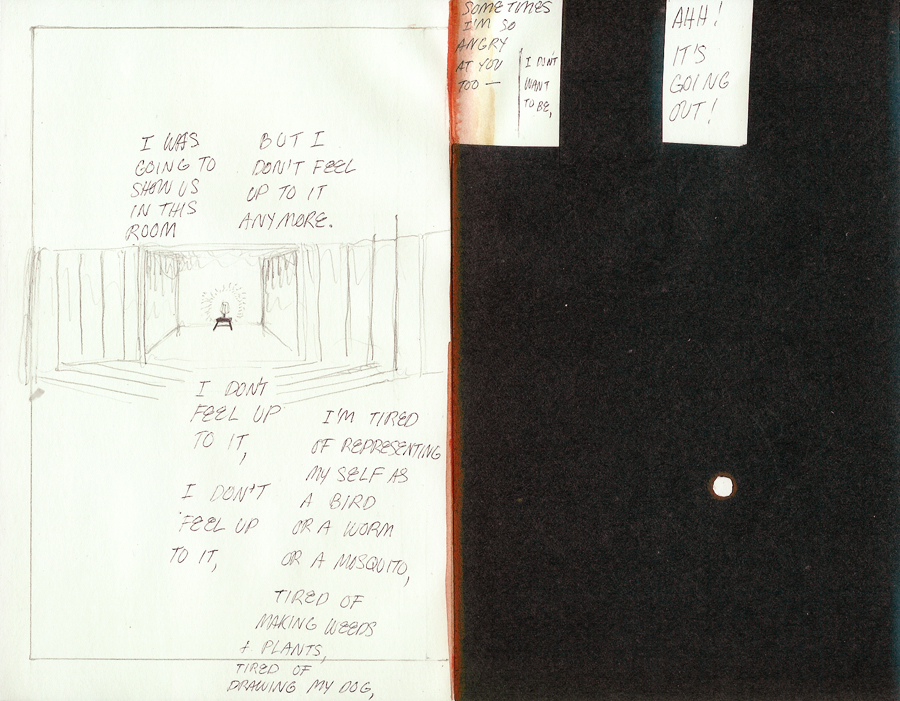 I WAS
GOING TO
SHOW US
IN THIS
ROOM
BUT I
DON'T FEEL
UP TO IT
ANYMORE.
I DON'T
FEEL UP
TO IT,
I DON'T
FEEL UP
TO IT,
I'M TIRED
OF REPRESENTING
MYSELF AS
A BIRD
OR A WORM
OR A MOSQUITO,
TIRED OF
MAKING WEEDS
+ PLANTS,
TIRED OF
DRAWING MY DOG,
SOMETIMES
I'M SO
ANGRY
AT YOU
TOO —
I DON'T
WANT
TO BE,
AHH!
IT'S
GOING
OUT!